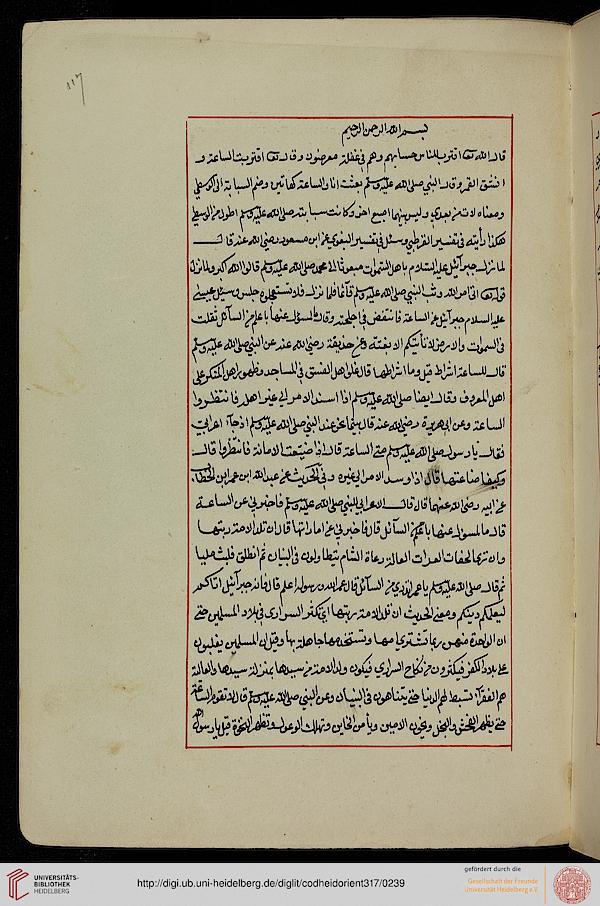 ١١٧
بسم الله الرحمن الرحيم
قال الله تعا اقترب للناس حسابهم وهم في غفلة معرضون وقال تعا اقتربت الساعة و
انشق القمر وقال النبي صلى الله عليه وسلم بعثت انا والساعة كهاتين وضم السبابة الى الوسطى
ومعناه لا نبي بعدي وليس بينهما اصبع اخر وكانت سبابته صلى الله عليه وسلم اطول من الوسطى
هكذا رأيته في تفسير القرطبي وسئل في تفسير البغوي عن ابن مسعود رضي الله عنه قال
لما نزل جبرآئيل عليه السلام باهل السموات مبعوثا الى محمد صلى الله عليه وسلم قالوا الله اكبر ولما نزل
قوله تعا اتى امر الله وثب النبي صلى الله عليه وسلم قآئما فلما نزل فلا تستعجلوه جلس وسئل عيسى
عليه السلام جبرآئيل عن الساعة فانتفض في اجنحته وقال ما المسؤل عنها باعلم من السآئل ثقلت
في السموات والارض لا تأتيكم الا بغتة وعن حذيفة رضي الله عنه عن النبي صلى الله عليه وسلم
قال للساعة اشراط قيل وما اشراطها قال غلو اهل الفسق في المساجد وظهور اهل المنكر على
اهل المعروف وقال ايضا صلى الله عليه وسلم اذا اسند الامر الى غير اهله فانتظروا
الساعة وعن ابي هريرة رضي الله عنه قال بينما نحن عند النبي صلى الله عليه وسلم اذ جآء اعرابي
فقال يا رسول صلى الله عليه وسلم متى الساعة قال اذا ضيعت الامانة فانتظروا قال
وكيف اضاعتها قال اذا وسد الامر الى غيره وفي الحديث عن عبد الله ابن عمر ابن الخطاب
عن ابيه رضي الله عنهما قال قال الاعرابي للنبي صلى الله عليه وسلم فاخبرني عن الساعة
قال ما المسول عنها باعلم من السآئل قال فاخبرني عن اماراتها قال ان تلد الامة ربتها
وان ترى الحفات العرات العالة رعاة الشام يتطاولون في البنيان ثم انطلق فلبث مليا
ثم قال صلى الله عليه وسلم يا عمر اتدري من السآئل قال عمر الله ورسوله اعلم قال فانه جبرآئيل اتاكم
ليعلمكم دينكم ومعنى الحديث ان تلد الامة ربتها اي تكثر السراري في بلاد المسلمين حتى
ان الواحدة منهن ربما تشتري امها وتستخدمها جاهلة بها وقيل ان المسلمين يغلبون
على بلاد الكفر فيكثرون من نكاح السراري فيكون ولد الامة من سيدها بمنزلة سيدها والعالة
هم الفقرآء تنبسط لهم الدنيا حتى يتباهون في البنيان وعن النبي صلى الله عليه وسلم قال لا تقوم الساعة
حتى يظهر الفحش والبخل ويخون الامين ويأمن الخاين وتهلك الوعول وتظهر التحوة قيل يا رسول الله
UNIVERSITÄTS-
BIBLIOTHEK
HEIDELBERG
http://digi.ub.uni-heidelberg.de/diglit/codheidorient317/0239
gefördert durch die
Gesellschaft der Freunde
Universität Heidelberg e.V.